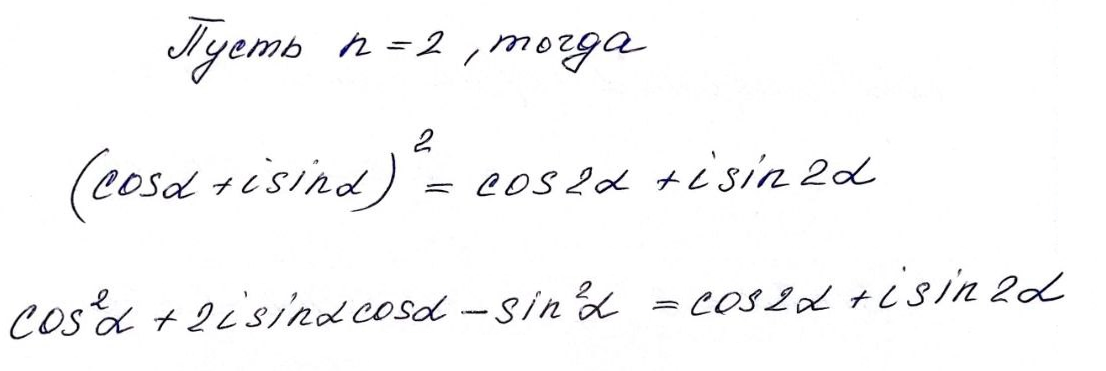 Пусть n = 2, тогда
(cosα + i sinα)² = cos2α + i sin2α
cos²α + 2i sinα cosα − sin²α = cos2α + i sin2α